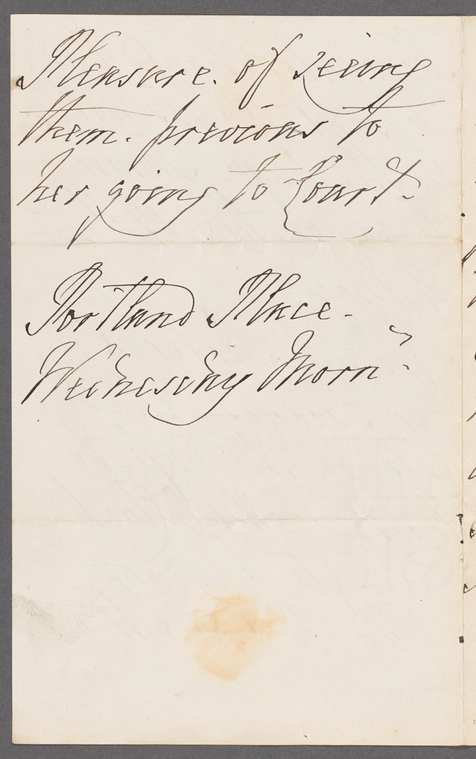 Pleasure. of seeing
them. previous to
her going to Court.
Portland Place.
Wednesday Morn: